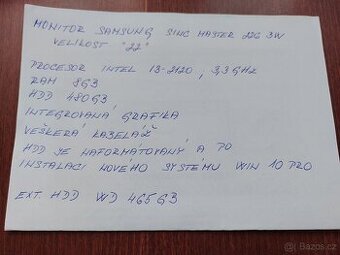 MONITOR SAMSUNG SINC MASTER 226 BW
VELIKOST "22"
PROCESOR INTEL I3-2120, 3,3 GHz
RAM 8GB
HDD 480GB
INTEGROVANÁ GRAFIKA
VEŠKERÁ KABELÁŽ
HDD JE NAFORMÁTOVANÝ A PO
INSTALACI NOVÉHO SYSTÉMU WIN 10 PRO
EXT. HDD WD 465GB
Sbazos.cz